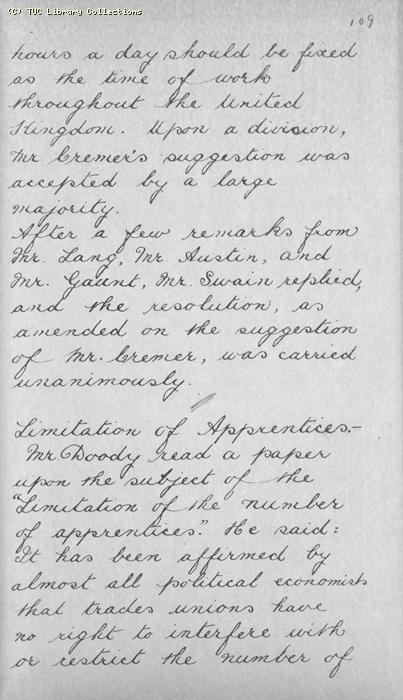 (C) TUC Library Collections
109
hours a day should be fixed
as the time of work
throughout the United
Kingdom. Upon a division,
Mr Cremer's suggestion was
accepted by a large
majority.
After a few remarks from
Mr. Lang, Mr Austin, and
Mr. Gaunt, Mr. Swain replied,
and the resolution, as
amended on the suggestion
of Mr. Cremer, was carried
unanimously.
Limitation of Apprentices.-
Mr. Doody read a paper
upon the subject of the
"Limitation of the number
of apprentices." He said:
It has been affirmed by
almost all political economists
that trades unions have
no right to interfere with
or restrict the number of